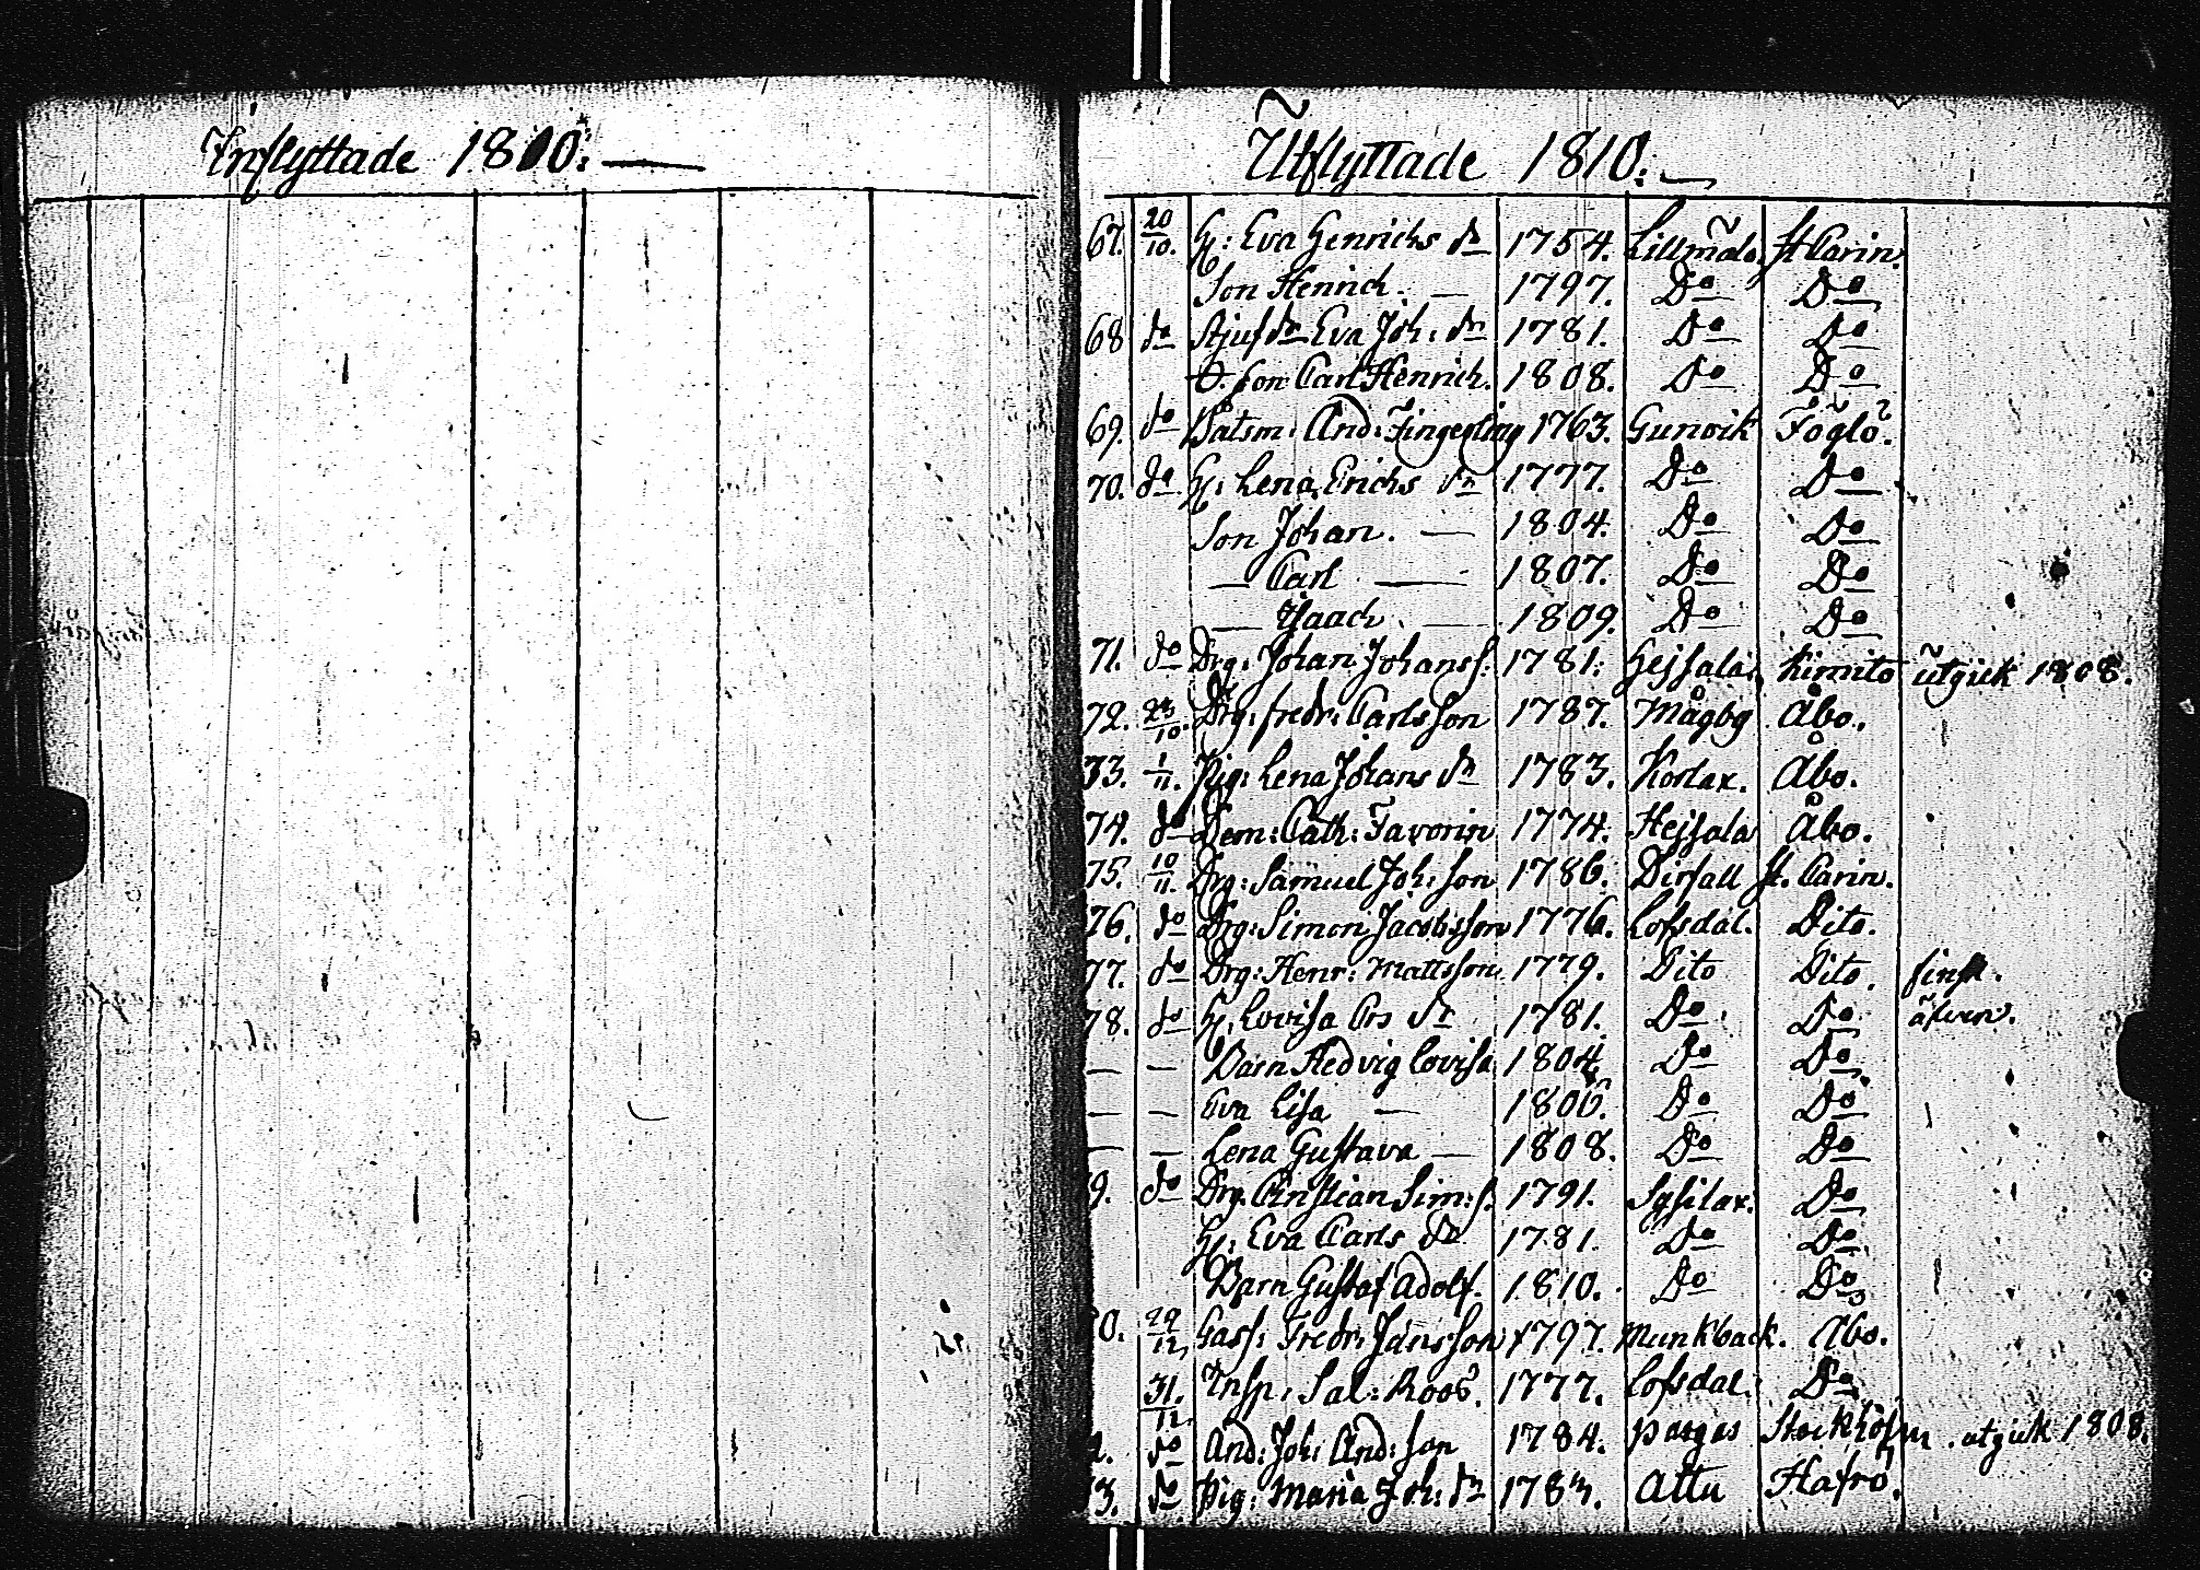 Inflyttade 1810: —
Utflyttade 1810: —
67. 20/10. H: Eva Henrichs dr 1754. Lillmälö St Carin.
Son Henrich. — 1797. Do Do
68 do Stjufdr Eva Joh: dr 1781. Do Do
O. son Carl Henrich. 1808. Do Do
69. do Båtsm: And: Fingerling 1763. Gunvik Föglö.
70. do H: Lena Erichs dr 1777. Do Do
Son Johan. — 1804. Do Do
— Carl — 1807. Do Do
— Ysaach. — 1809. Do Do
71. do Drg: Johan Johanss: 1781. Hejsala, Kimito utgick 1808.
72. 23/10. Drg: fredr: Carlsson 1787. Mågby Åbo.
73. 1/11. Pig: Lena Johans dr 1783. Korlax. Åbo.
74. do Dem: Cath: Favorin 1774. Hejsala Åbo.
75. 10/11. Drg: Samuel Joh: son 1786. Dirfall St. Carin.
76. do Drg: Simon Jacobsson 1776. Lofsdal. Dito.
77. do Drg: Henr: Mattsson 1779. Dito Dito. finsk.
78. do H: Lovisa Crs dr 1781. Do Do äfven.
— — Barn Hedvig Lovisa 1804. Do Do
— — Eva Lisa — 1806. Do Do
— — Lena Gustava — 1808. Do Do
9. do Drg. Christian Sim: s. 1791. Sysilax. Do
H: Eva Carls dr 1781. Do Do
Barn Gustaf Adolf. 1810. Do Do
0. 29/12. Gass: Fredr: Jansson 1797. Munkback. Åbo.
31./12 Insp: Sal: Roos. 1777. Lofsdal. Do
2. do And: Joh: And: son 1784. Pargas Stockholm. utgick 1808.
3. do Pig: Maria Joh: dr 1783. Attu Hafrö.